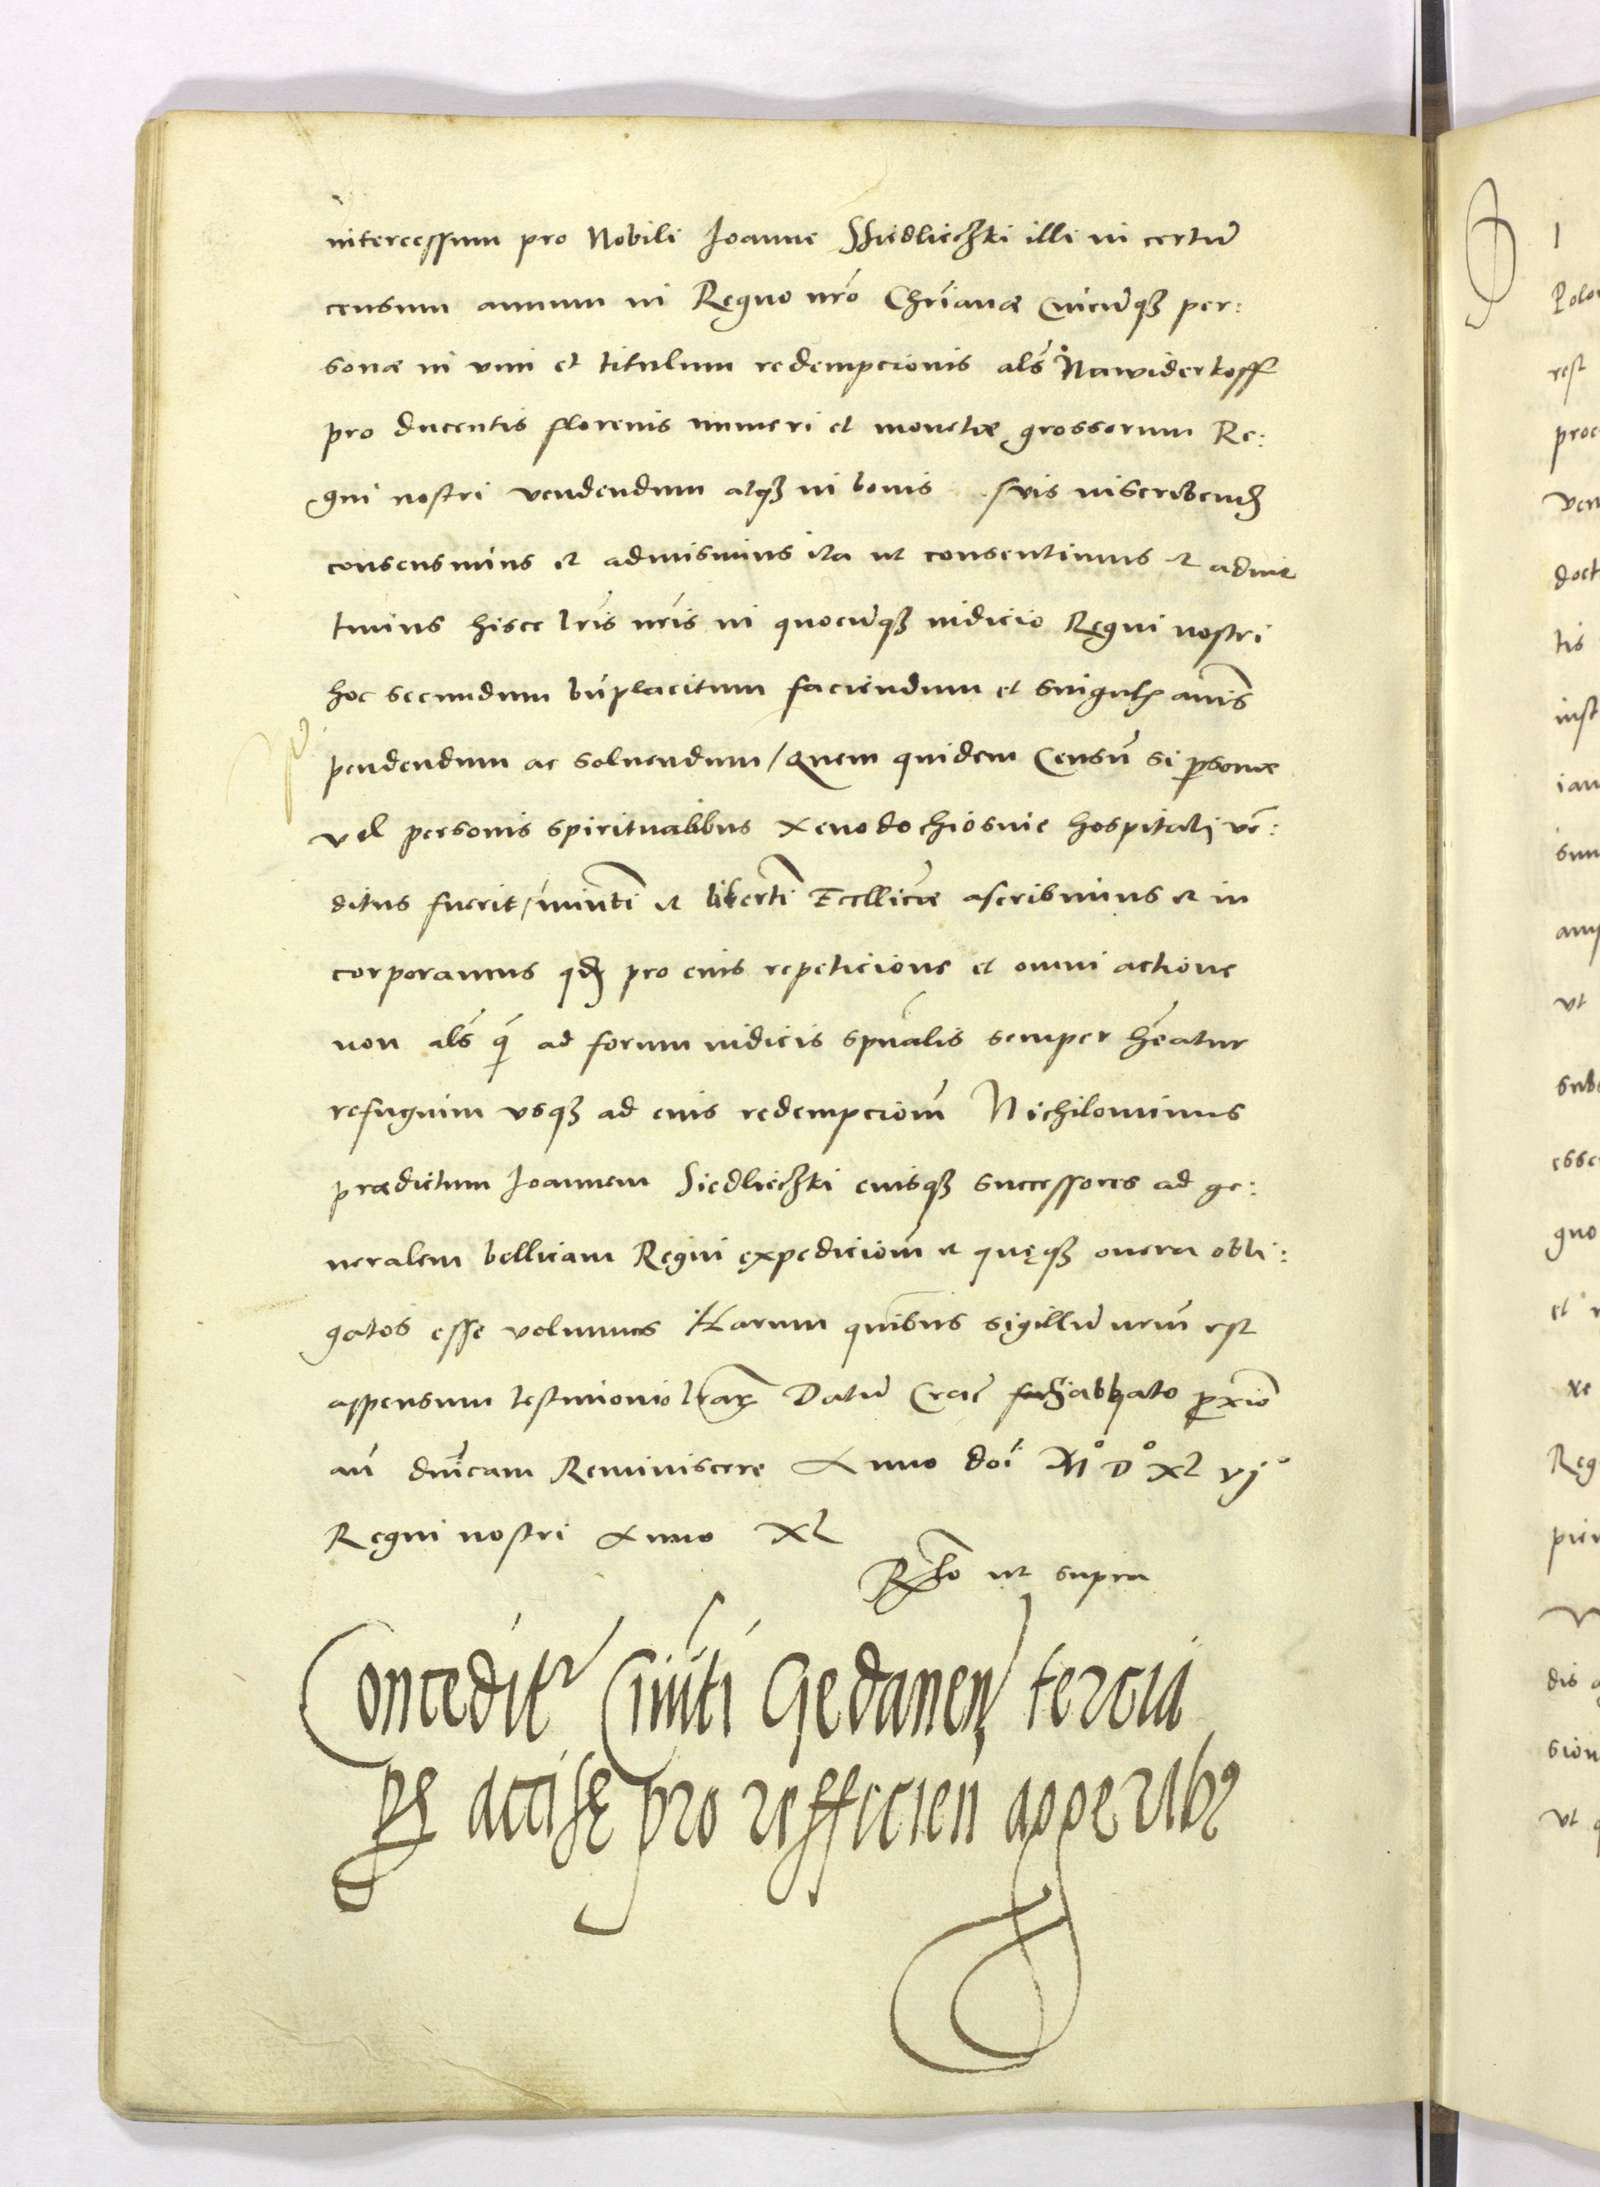 intercessum pro Nobili Joanne Ssiedlieczki illi in certũ
censum annuum in Regno nr̃o Chr̃ianæ Cuicũq3 per:
sonæ in vim et titulum redempcionis als̃ Nawiderkoff
pro ducentis florenis numeri et monetæ grossorum Re:
gni nostri vendendum atq3 in bonis suis inscribend
consensimus et admisimus ita ut consentimus et admit
timus hisce lr̃is nr̃is in quocũq3 iudicio Regni nostri
hoc secundum bñplacitum faciendum et singul annis
pendendum ac soluendum / Quem quidem Censũ si psonæ
vel personis spiritualibus Xenodochiosuie hospitali ve:
ditus fuerit / im̃uniti et liberti Eccllicæ ascribimus et in
corporamus qd pro eius repeticione et omni actione
non als̃ q̃ ad forum iudicis sp̃ualis semper hẽatur
refugium vsq3 ad eius redempcionẽ Nichilominus
prædictum Joannem Siedlieczki eiusq3 successores ad ge:
neralem bellicam Regni expedicionẽ et quęq3 onera obli:
gatos esse volumus Harum quibus sigillũ nrũ est
appensum testimonio lr̃ar Datũ Crac̃ Sabbato p̱xĩo
añ dñicam Reminiscere Anno doĩ M° D° Xl vj°
Regni nostri Anno Xl
Rlõ ut supra
Conceditr Ciuitĩ Gedanen tercia
ps accise pro refficien aggeribꝰ
I
Polo
rest
proc
ven
doct
tis
inst
iam
sum
amp
vt
sub
esse
quo
et
xe
Reg
pien
dis
sion
vt